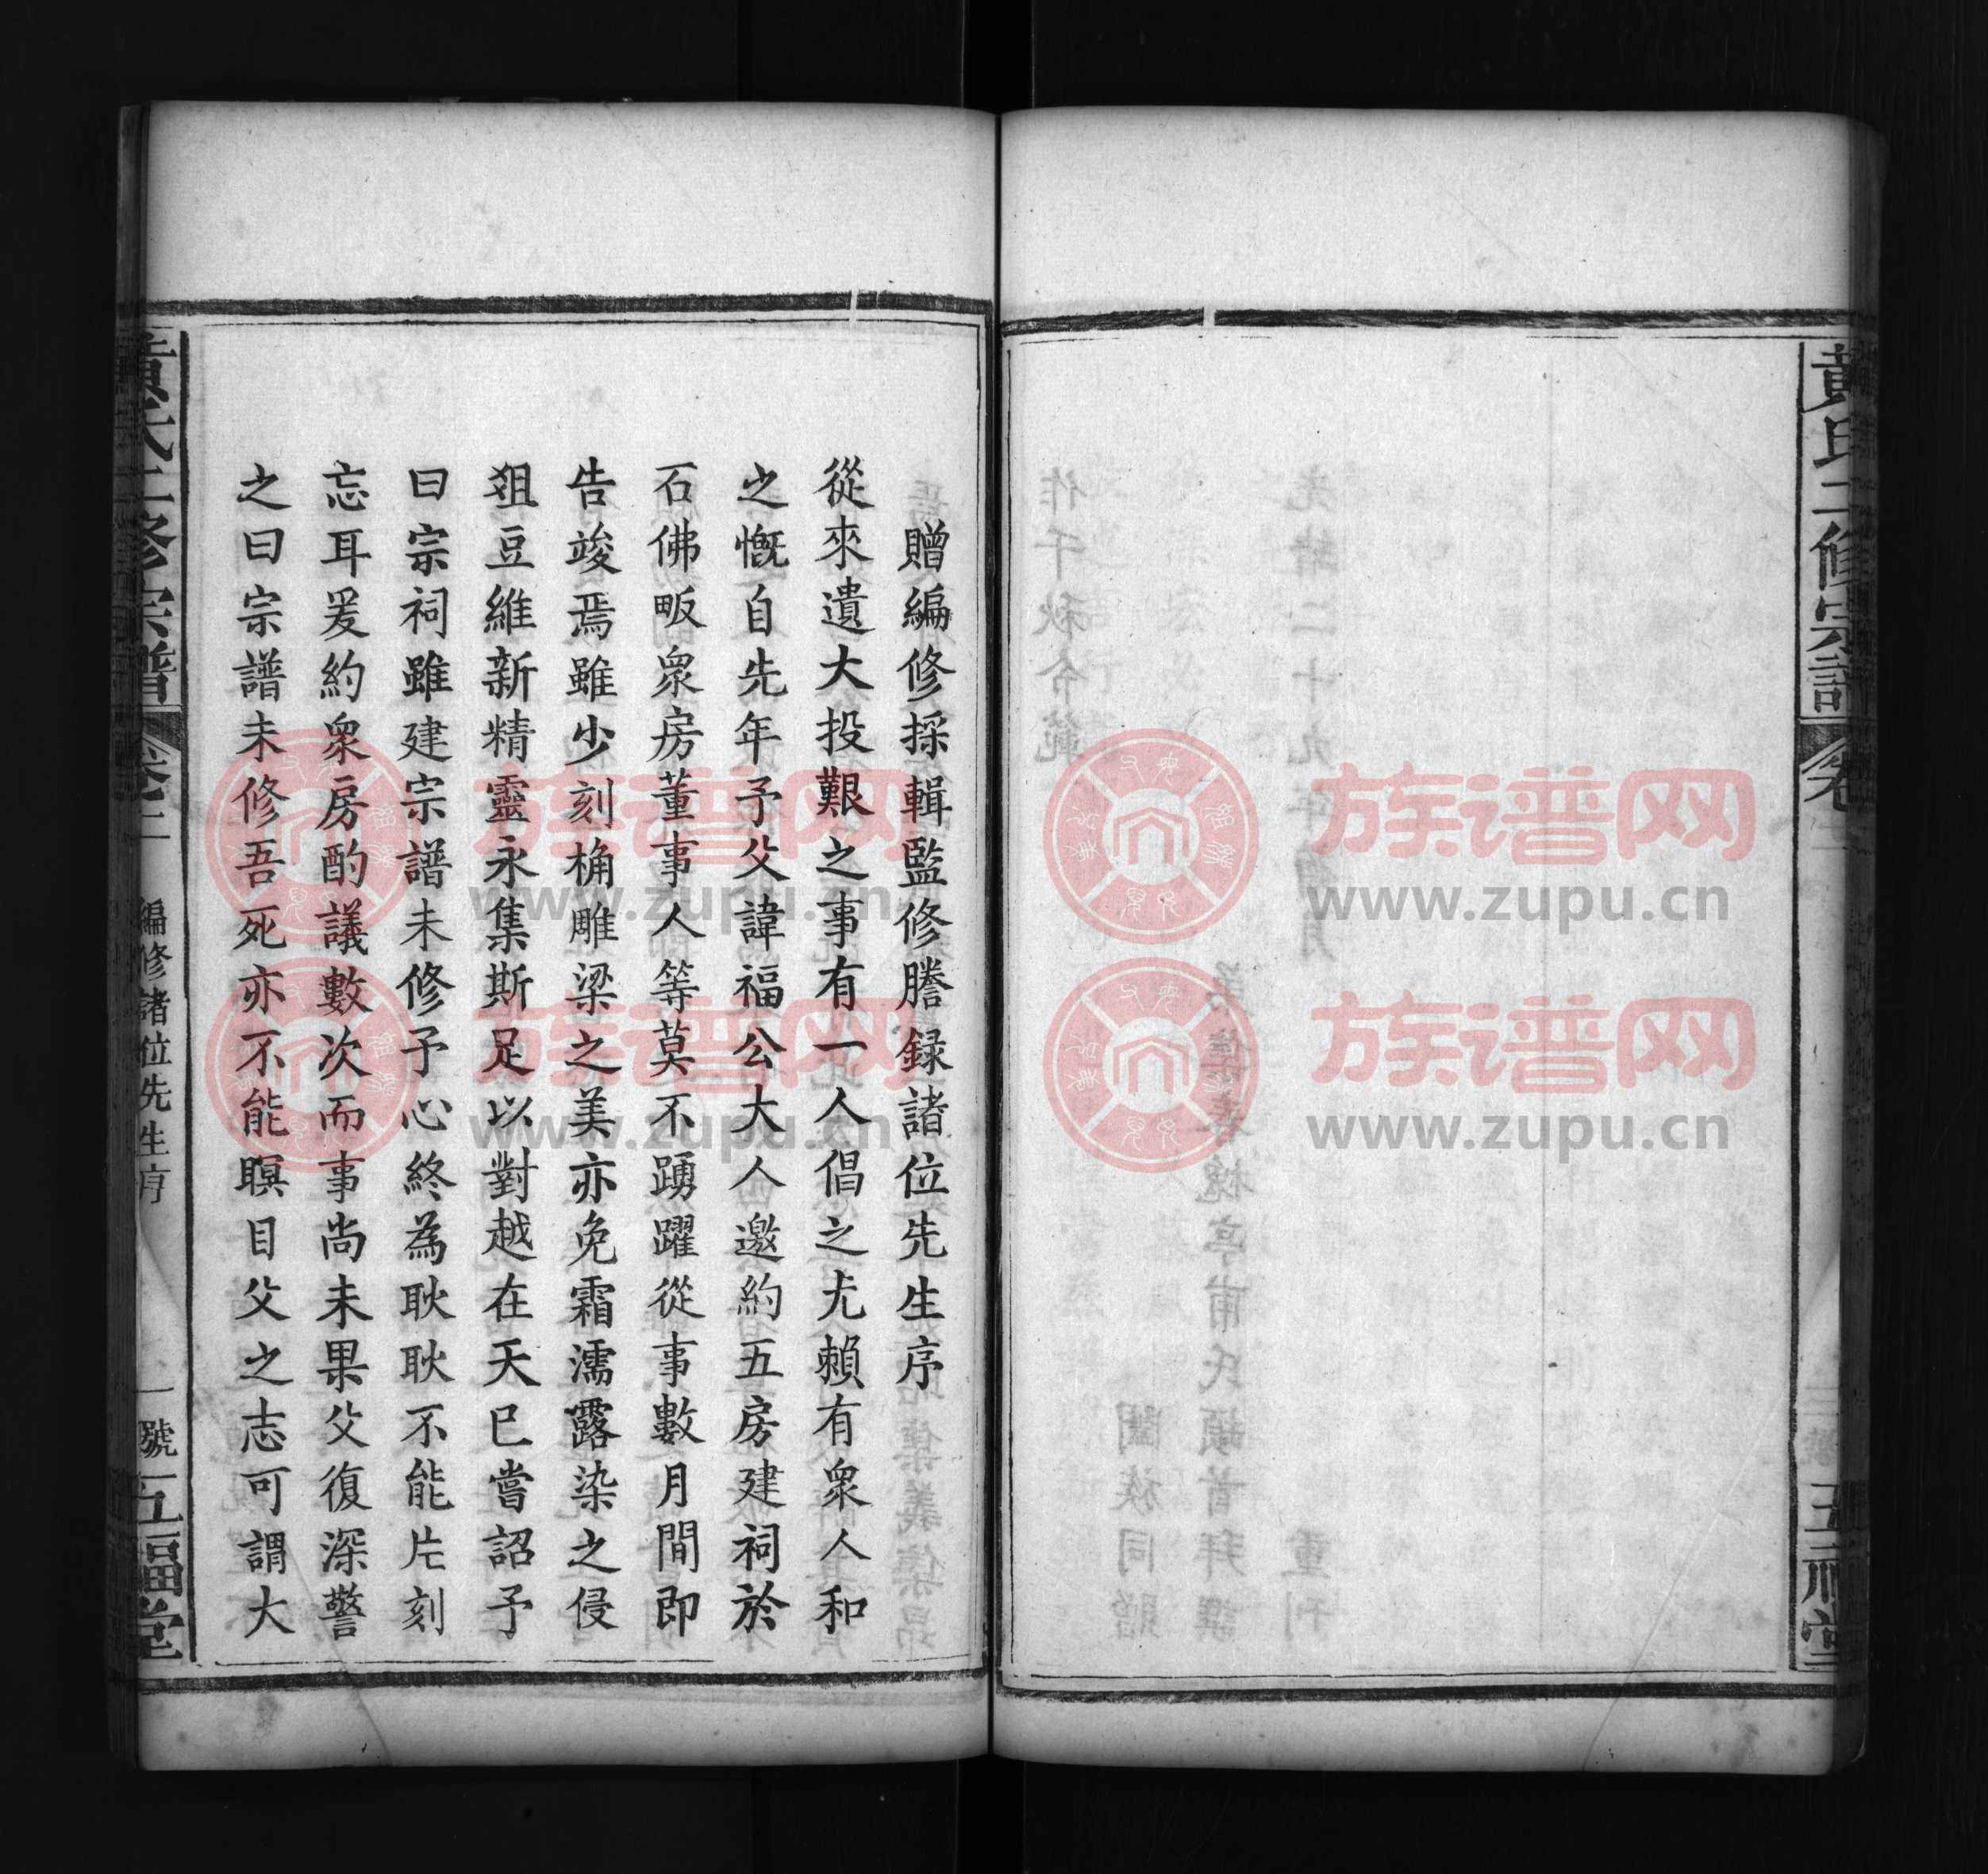 黃氏二修宗譜
五福堂
贈編修採輯監修謄録諸位先生序
從來遺大投艱之事有一人倡之尤賴有衆人和
之慨自先年予父諱福公大人邀約五房建祠於
石佛畈衆房董事人等莫不踴躍從事數月間即
告竣焉雖少刻桷雕梁之美亦免霜濡露染之侵
俎豆維新精靈永集斯足以對越在天巳嘗詔予
曰宗祠雖建宗譜未修予心終為耿耿不能片刻
忘耳爰約衆房酌議數次而事尚未果父復深警
之曰宗譜未修吾死亦不能瞑目父之志可謂大
黃氏二修宗譜 卷二 編修諸位先生序 一號 五福堂
族谱网 族谱网
www.zupu.cn www.zupu.cn
族谱网 族谱网
www.zupu.cn www.zupu.cn